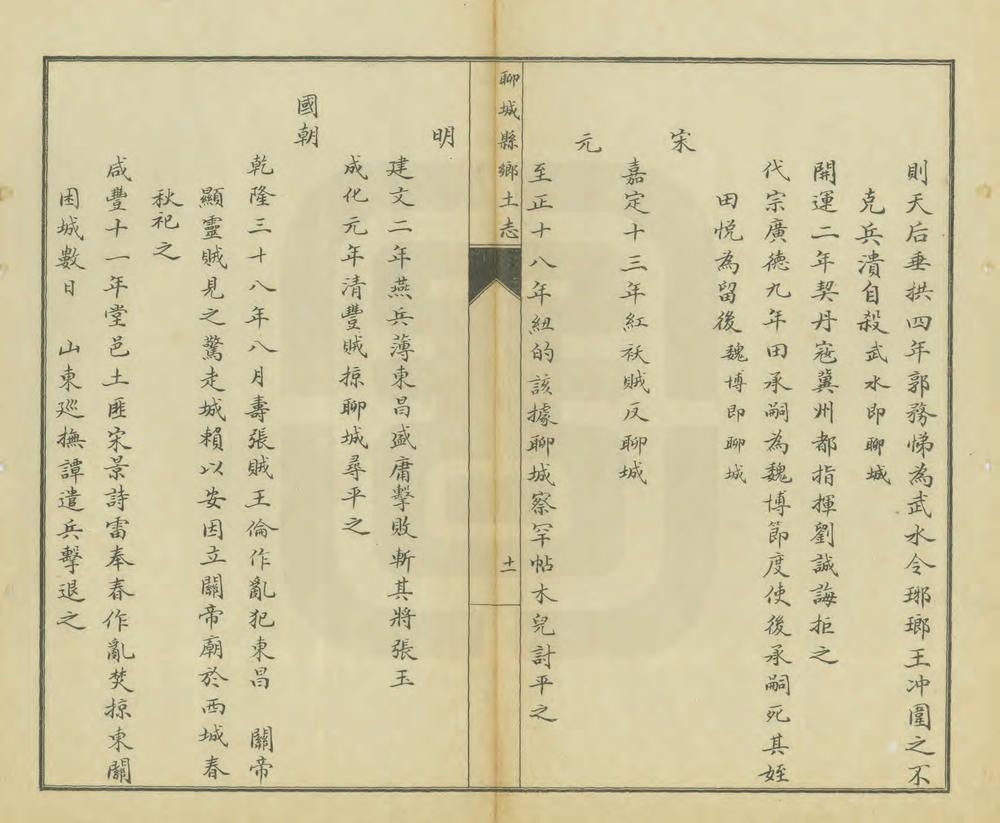 則天后垂拱四年郭務悌為武水令琊瑯王冲圍之不
克兵潰自殺武水即聊城
開運二年契丹寇冀州都指揮劉誠誨拒之
代宗廣德九年田承嗣為魏博節度使後承嗣死其姪
田悅為留後魏博即聊城
宋
嘉定十三年紅袄賊反聊城
元
至正十八年紐的該據聊城察罕帖木兒討平之
聊城縣鄉土志
十一
明
建文二年燕兵薄東昌盛庸擊敗斬其將張玉
成化元年清豐賊掠聊城尋平之
國朝
乾隆三十八年八月壽張賊王倫作亂犯東昌 關帝
顯靈賊見之驚走城賴以安因立關帝廟於西城春
秋祀之
咸豐十一年堂邑土匪宋景詩雷奉春作亂焚掠東關
困城數日 山東廵撫譚遣兵擊退之